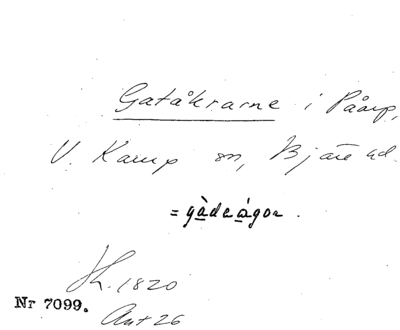 Gatåkrarne i Påarp,
V. Karup sn, Bjäre hd
= gàdeågor.
Sk. 1820
Nr 7099.
Ant 26